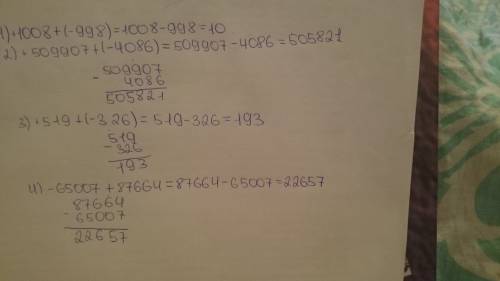 1) +1008+(-998)=1008-998=10
2) +509907+(-4086)=509907-4086=505821
- 509907
4086
505821
3) +519+(-326)=519-326=193
519
-326
193
4) -65007+87664=87664-65007=22657
87664
- 65007
22657